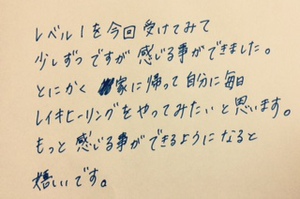 レベル1を今回受けてみて
少しずつですが感じる事ができました。
とにかく家に帰って自分に毎日
レイキヒーリングをやってみたいと思います。
もっと感じる事ができるようになると
嬉しいです。